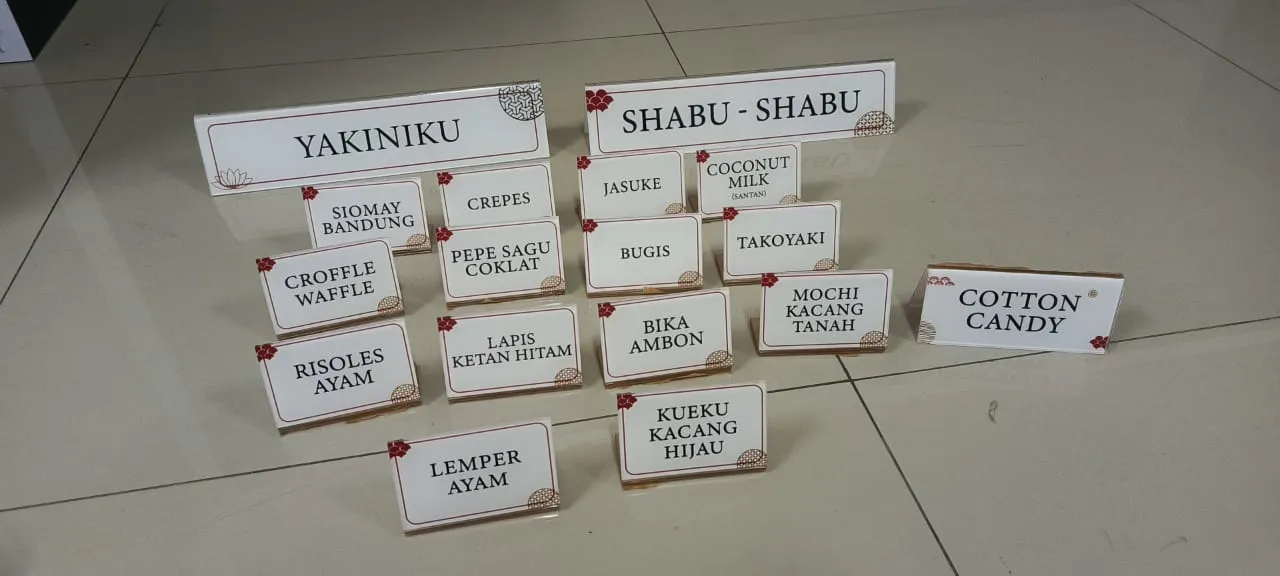 YAKINIKU
SHABU - SHABU
SIOMAY
BANDUNG
CREPES
JASUKE
COCONUT
MILK
(SANTAN)
CROFFLE
WAFFLE
PEPE SAGU
COKLAT
BUGIS
TAKOYAKI
RISOLES
AYAM
LAPIS
KETAN HITAM
BIKA
AMBON
MOCHI
KACANG
TANAH
COTTON
CANDY
LEMPER
AYAM
KUEKU
KACANG
HIJAU